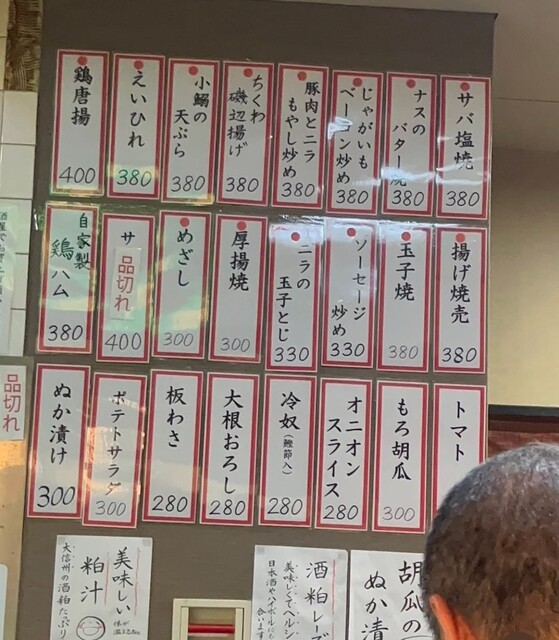 サバ塩焼
380
ナスの
バター焼
380
じゃがいも
ベーコン炒め
380
豚肉とニラ
もやし炒め
380
ちくわ
磯辺揚げ
380
小鰯の
天ぷら
380
えいひれ
380
鶏唐揚
400
揚げ焼売
380
玉子焼
380
ソーセージ
炒め
330
ニラの
玉子とじ
330
厚揚焼
300
めざし
300
サ
品切れ
400
自家製
鶏ハム
380
トマト
もろ胡瓜
300
オニオン
スライス
280
冷奴
(鰹節入)
280
大根おろし
280
板わさ
280
ポテトサラダ
300
ぬか漬け
300
品切れ
胡瓜の
ぬか漬
酒粕レーズ
美味しくてヘルシ
日本酒やハイボールにも
合います
美味しい
粕汁
大信州の酒粕たっぷり